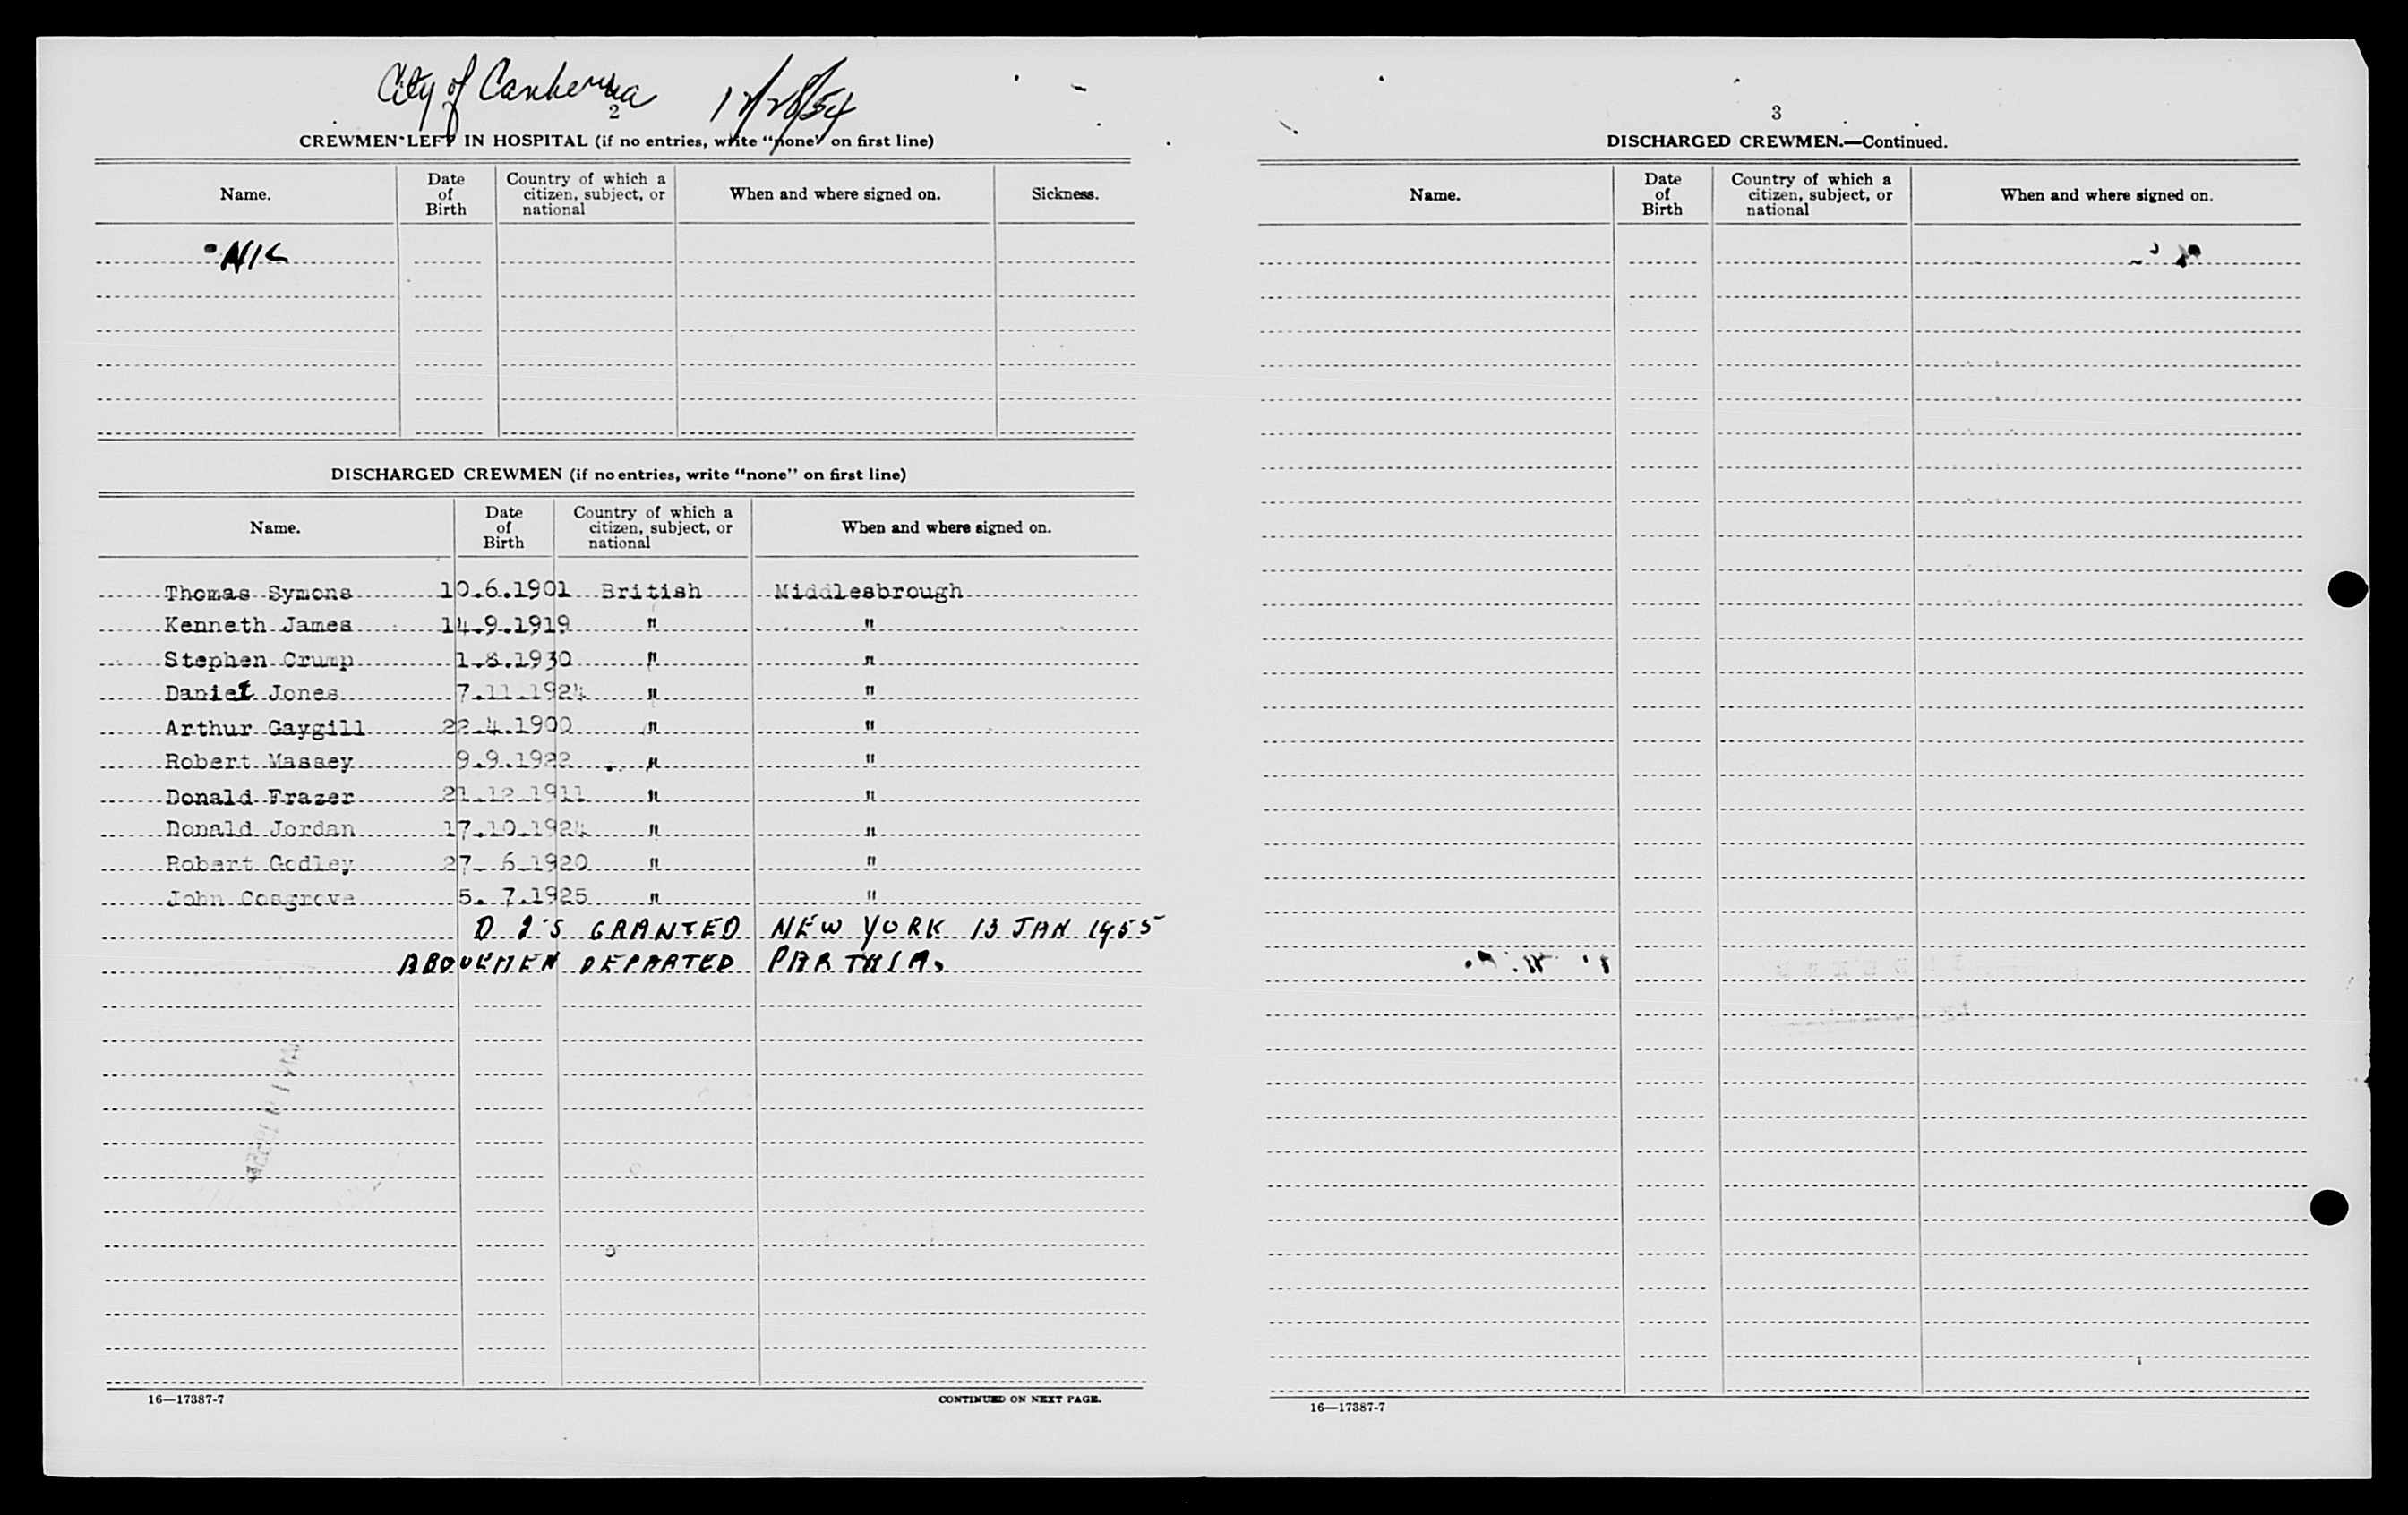 City of Canberra 12/28/54
2
CREWMEN LEFT IN HOSPITAL (if no entries, write "none" on first line)
Name. Date of Birth Country of which a citizen, subject, or national When and where signed on. Sickness.
NIL
DISCHARGED CREWMEN (if no entries, write "none" on first line)
Name. Date of Birth Country of which a citizen, subject, or national When and where signed on.
Thomas Symons 10.6.1901 British Middlesbrough
Kenneth James 14.9.1919 " "
Stephen Crump 1.8.1930 " "
Daniel Jones 7.11.1924 " "
Arthur Gaygill 22.4.1900 " "
Robert Massey 9.9.1922 " "
Donald Frazer 21.12.1911 " "
Donald Jordan 17.10.1924 " "
Robert Godley 27. 6.1920 " "
John Cosgrove 5. 7.1925 " "
D 2'S GRANTED NEW YORK 13 JAN 1955
ABOVEMEN DEPARTED PARTHIA.
16—17387-7 CONTINUED ON NEXT PAGE.
3
DISCHARGED CREWMEN.—Continued.
Name. Date of Birth Country of which a citizen, subject, or national When and where signed on.
16—17387-7